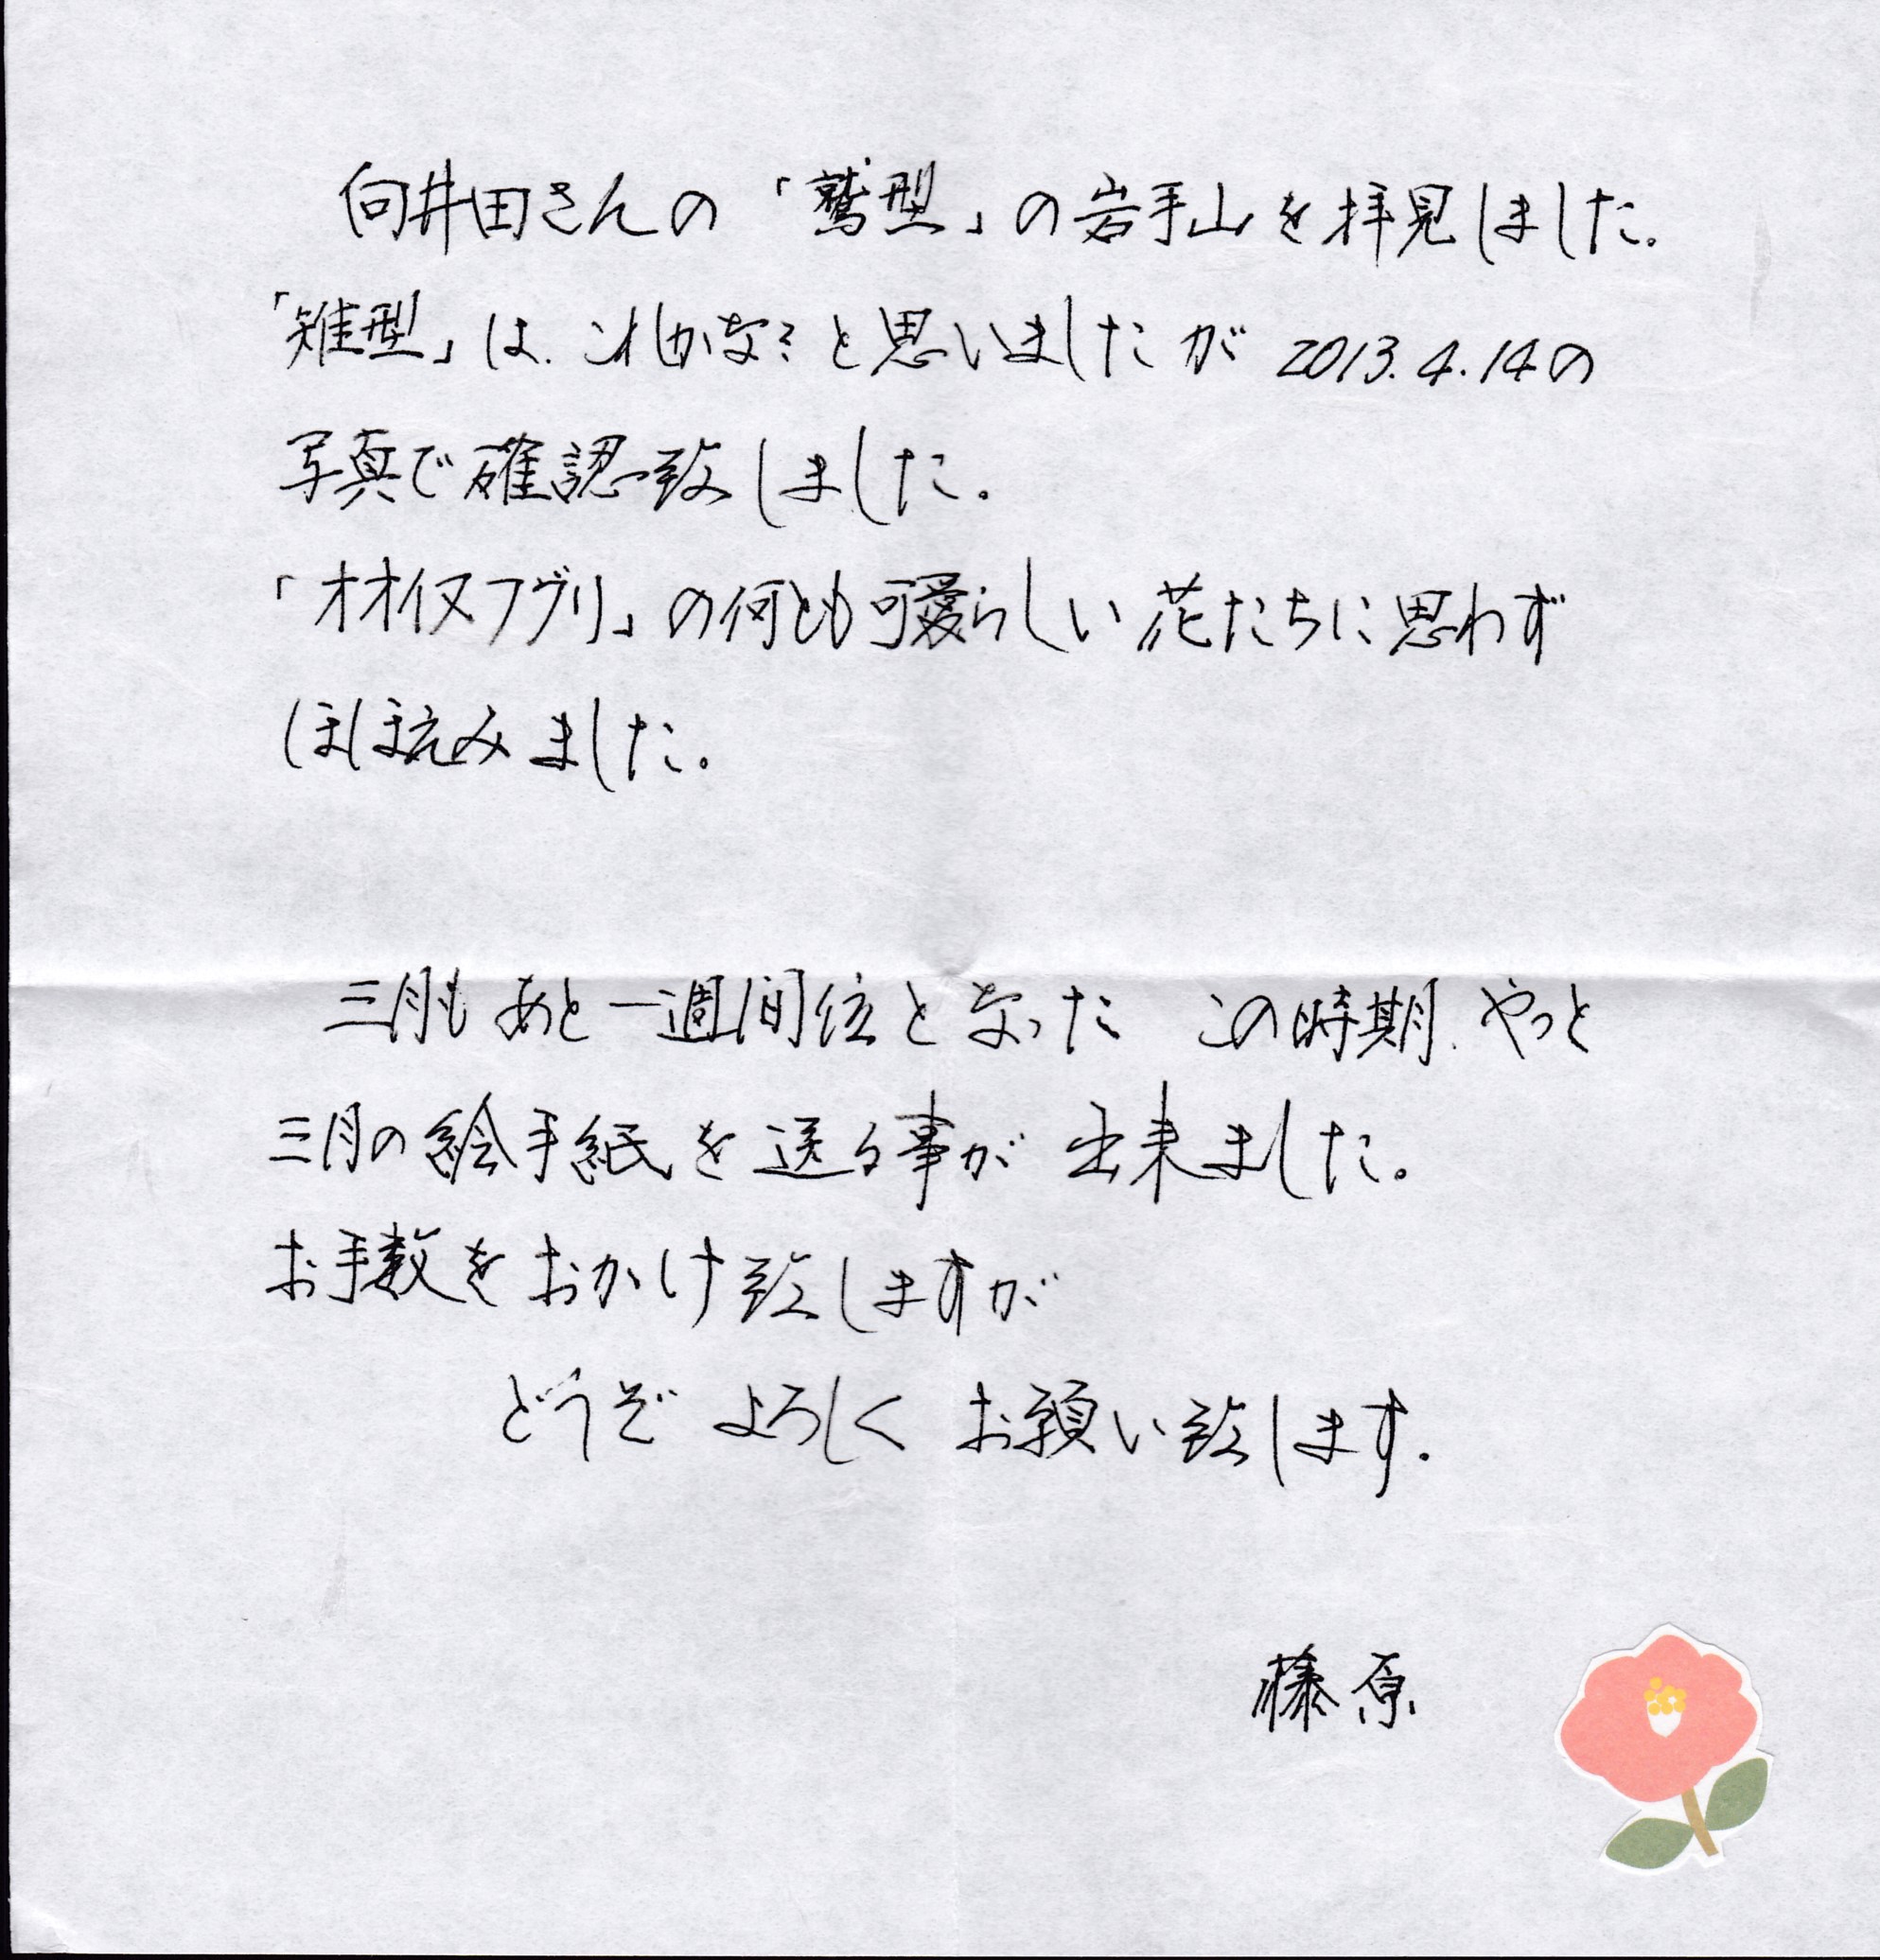 向井田さんの「鷲型」の岩手山を拝見しました。
「雉型」は、これかな?と思いましたが 2013.4.14の
写真で確認致しました。
「オオイヌフグリ」の何とも可愛らしい花たちに思わず
ほほえみました。
三月も あと一週間位となった この時期、やっと
三月の絵手紙を送る事が 出来ました。
お手数をおかけ致しますが
どうぞ よろしく お願い致します.
藤原